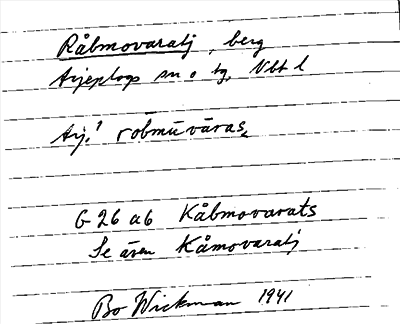 Råbmovaratj, berg
Arjeplogs sn o tg, Vbt l
Arj.¹ robmūvāras
G 26 a6 Kåbmovarats
Se även Kåmovaratj
Bo Wickman 1941